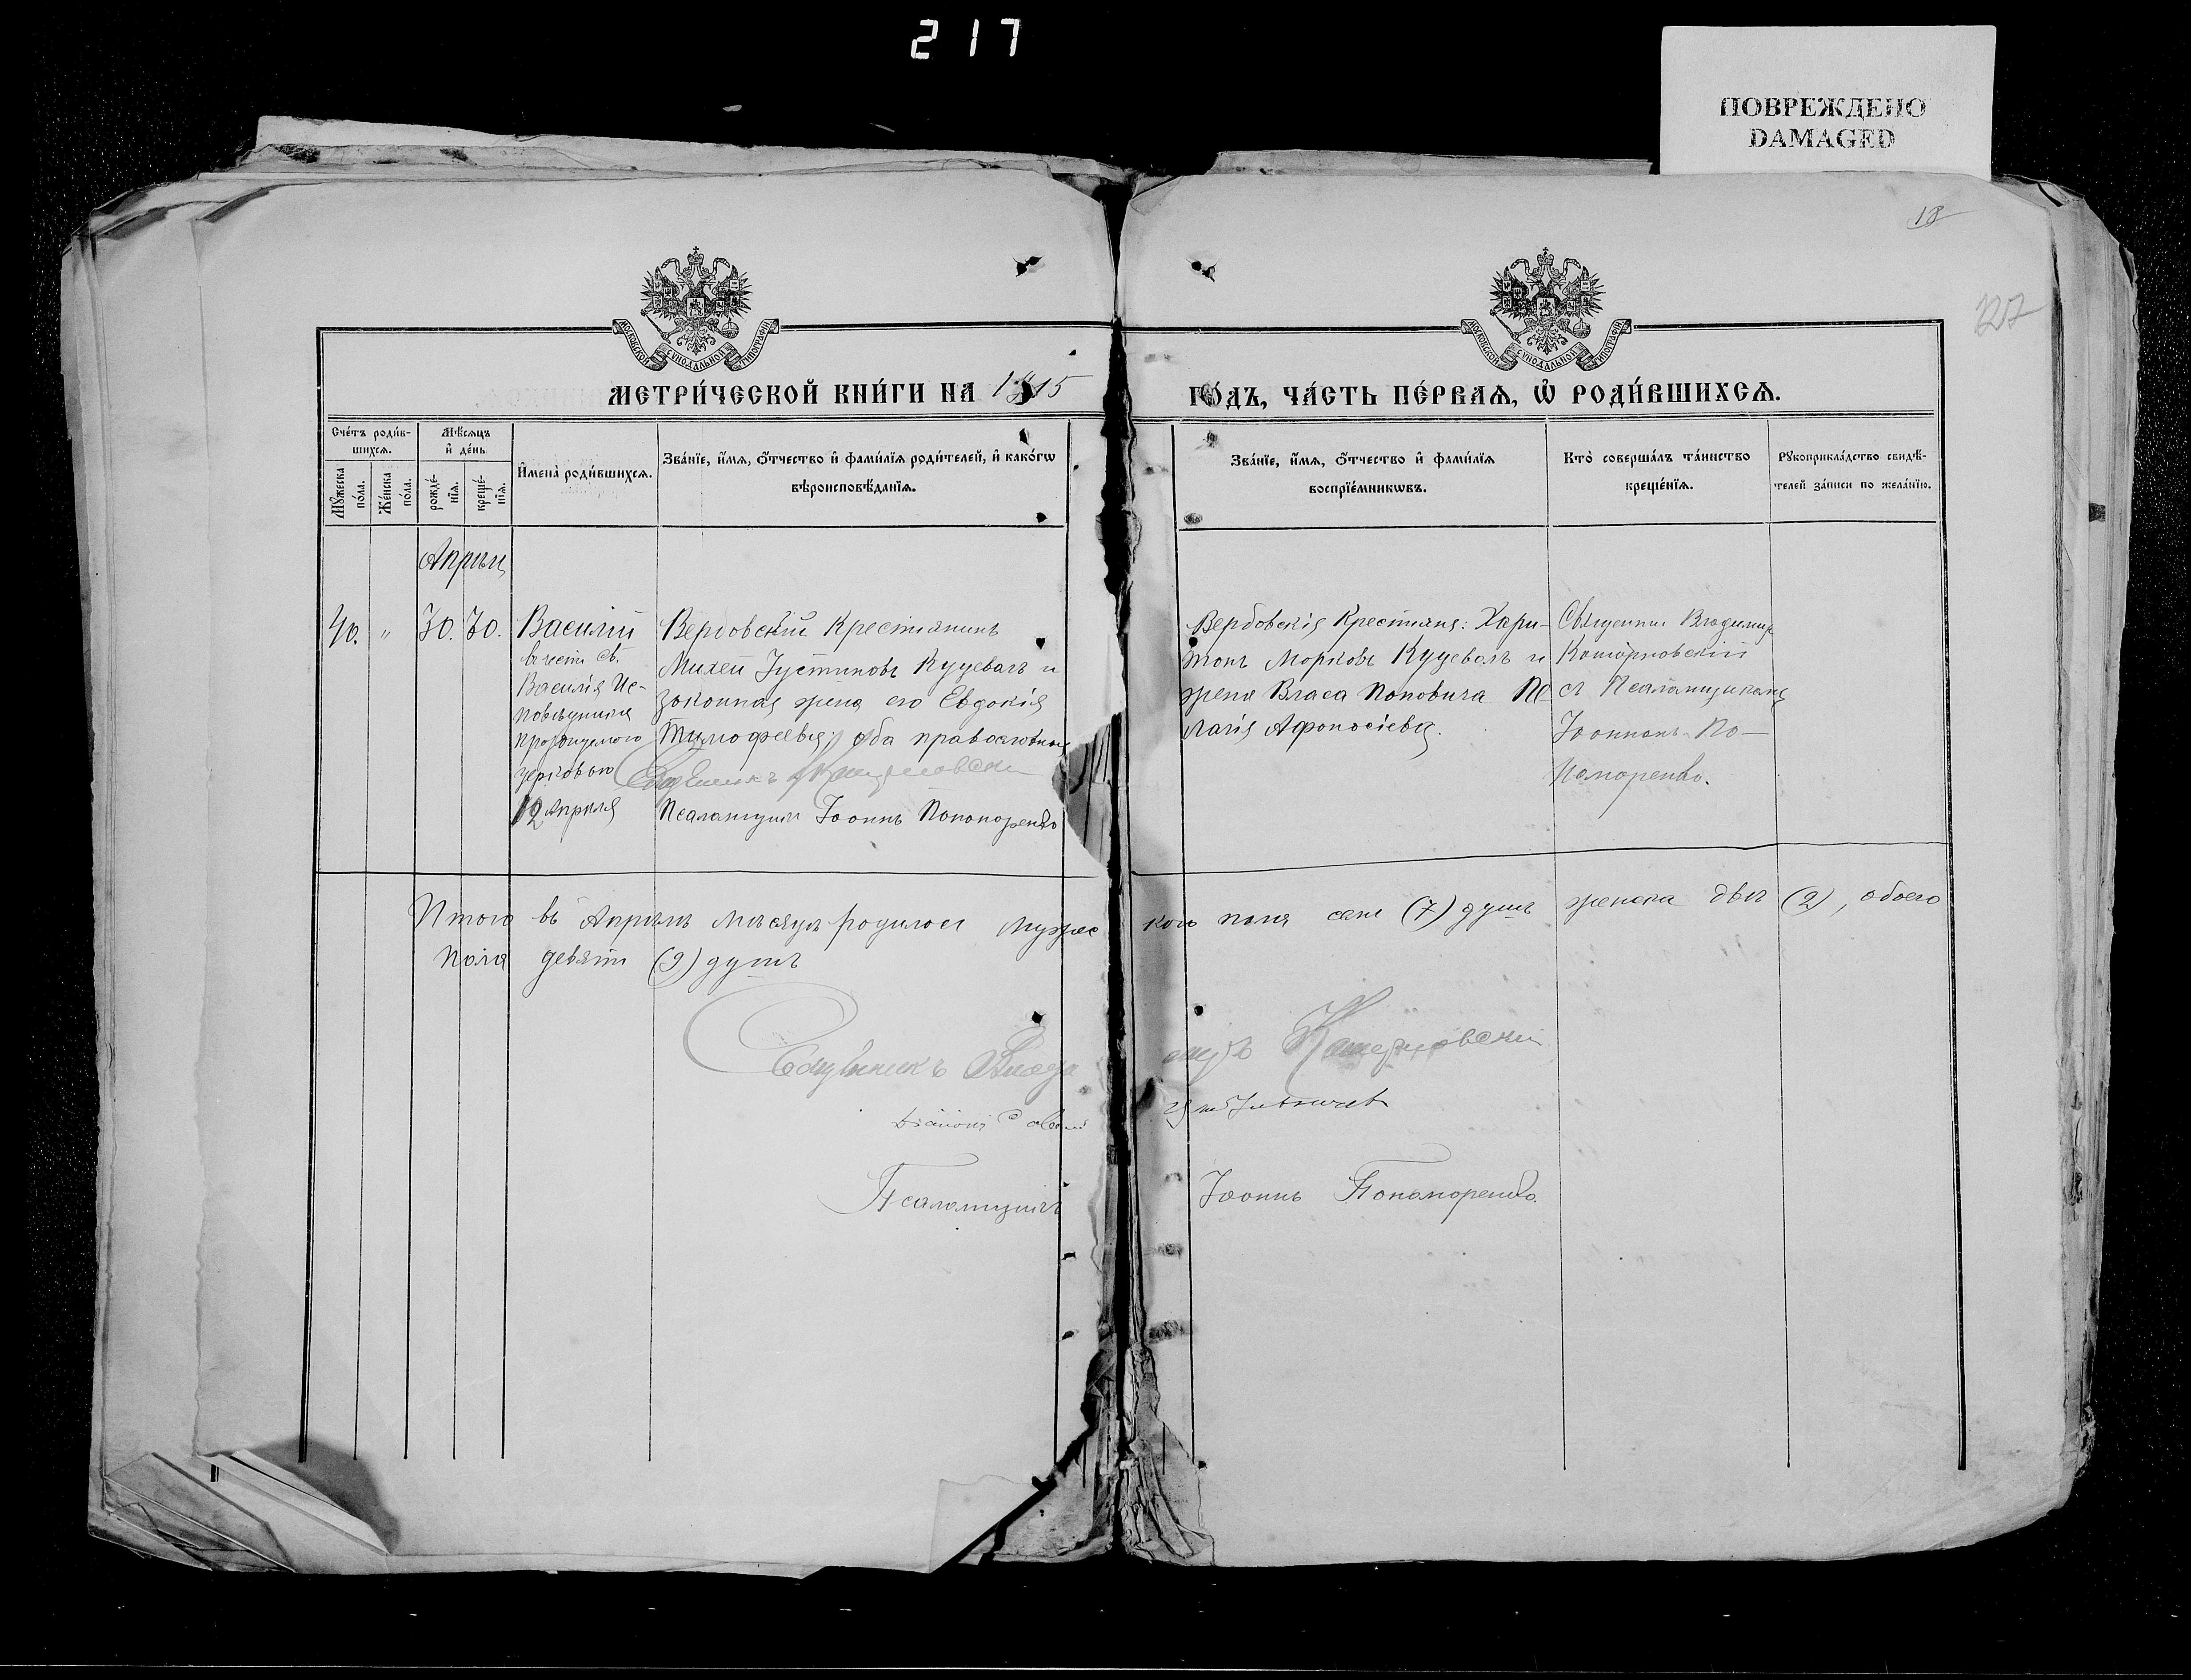 217
ПОВРЕЖДЕНО
DAMAGED
18
217
МОСКОВСКОЙ СѴНОДАЛЬНОЙ ТИПОГРАФІИ
МОСКОВСКОЙ СѴНОДАЛЬНОЙ ТИПОГРАФІИ
МЕТРИ́ЧЕСКОЙ КНИ́ГИ НА 1915
ГО́ДЪ, ЧА́СТЬ ПЕ́РВАѦ, Ѿ РОДИ́ВШИХСѦ.
Сче́тъ роди́в-
шихсѧ.
Мѣ́сѧцъ
и҆ де́нь.
Мꙋ́жеска
по́ла.
Же́нска
по́ла.
рожде́-
нїѧ.
креще́-
нїѧ.
И҆мена̀ роди́вшихсѧ.
Зва́нїе, и҆́мѧ, ѻ҆́тчество и҆ фами́лїѧ роди́телей, и҆ како́гѡ
вѣроисповѣ́данїѧ.
Зва́нїе, и҆́мѧ, ѻ҆́тчество и҆ фами́лїѧ
воспрїе́мникѡвъ.
Кто̀ соверша́лъ та́инство
креще́нїѧ.
Рꙋкоприкла́дство свидѣ́-
телей за́писи по жела́нїю.
Апрѣль
40. " 30. 30.
Василій
въ честь св.
Василія Ис-
повѣдника
празднуемого
церковью
12 Апрѣля
Вербовскій Крестянинъ
Михей Іустиновъ Куцевалъ и
законная жена его Евдокія
Тимофеевна, оба православные
Священникъ Каторновскій
Псаломщикъ Іоаннъ Пономоренко
Вербовскія Крестяне: Хари-
тонъ Морковъ Куцевалъ и
жена Власа Поповича Пе-
лагія Афоносіева.
Священникъ Владимиръ
Каторновскій
съ Псаломщикомъ
Іоанномъ По-
номоренко.
Итого въ Апрѣлѣ мѣсяцѣ родилося мужес кого пола семь (7) душъ женска двѣ (2), обоего
пола девять (9) душъ
Священникъ Влади миръ Каторновскій
Діаконъ
Псаломщикъ Іоаннъ Пономоренко.